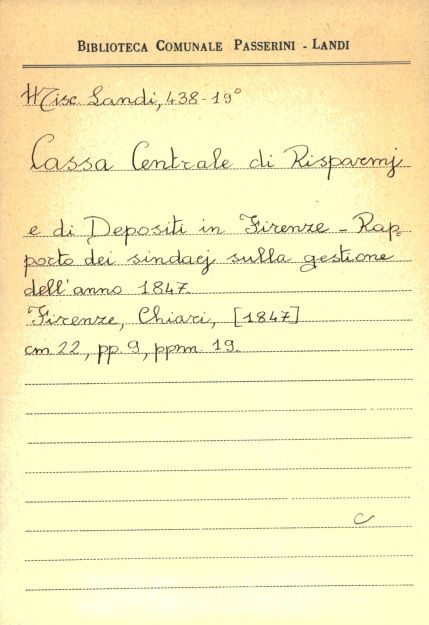 BIBLIOTECA COMUNALE PASSERINI - LANDI
Misc. Landi, 438-19°
Cassa Centrale di Risparmj
e di Depositi in Firenze - Rap-
porto dei sindacj sulla gestione
dell'anno 1847.
Firenze, Chiari, [1847]
cm 22, pp. 9, ppnn. 19.
C